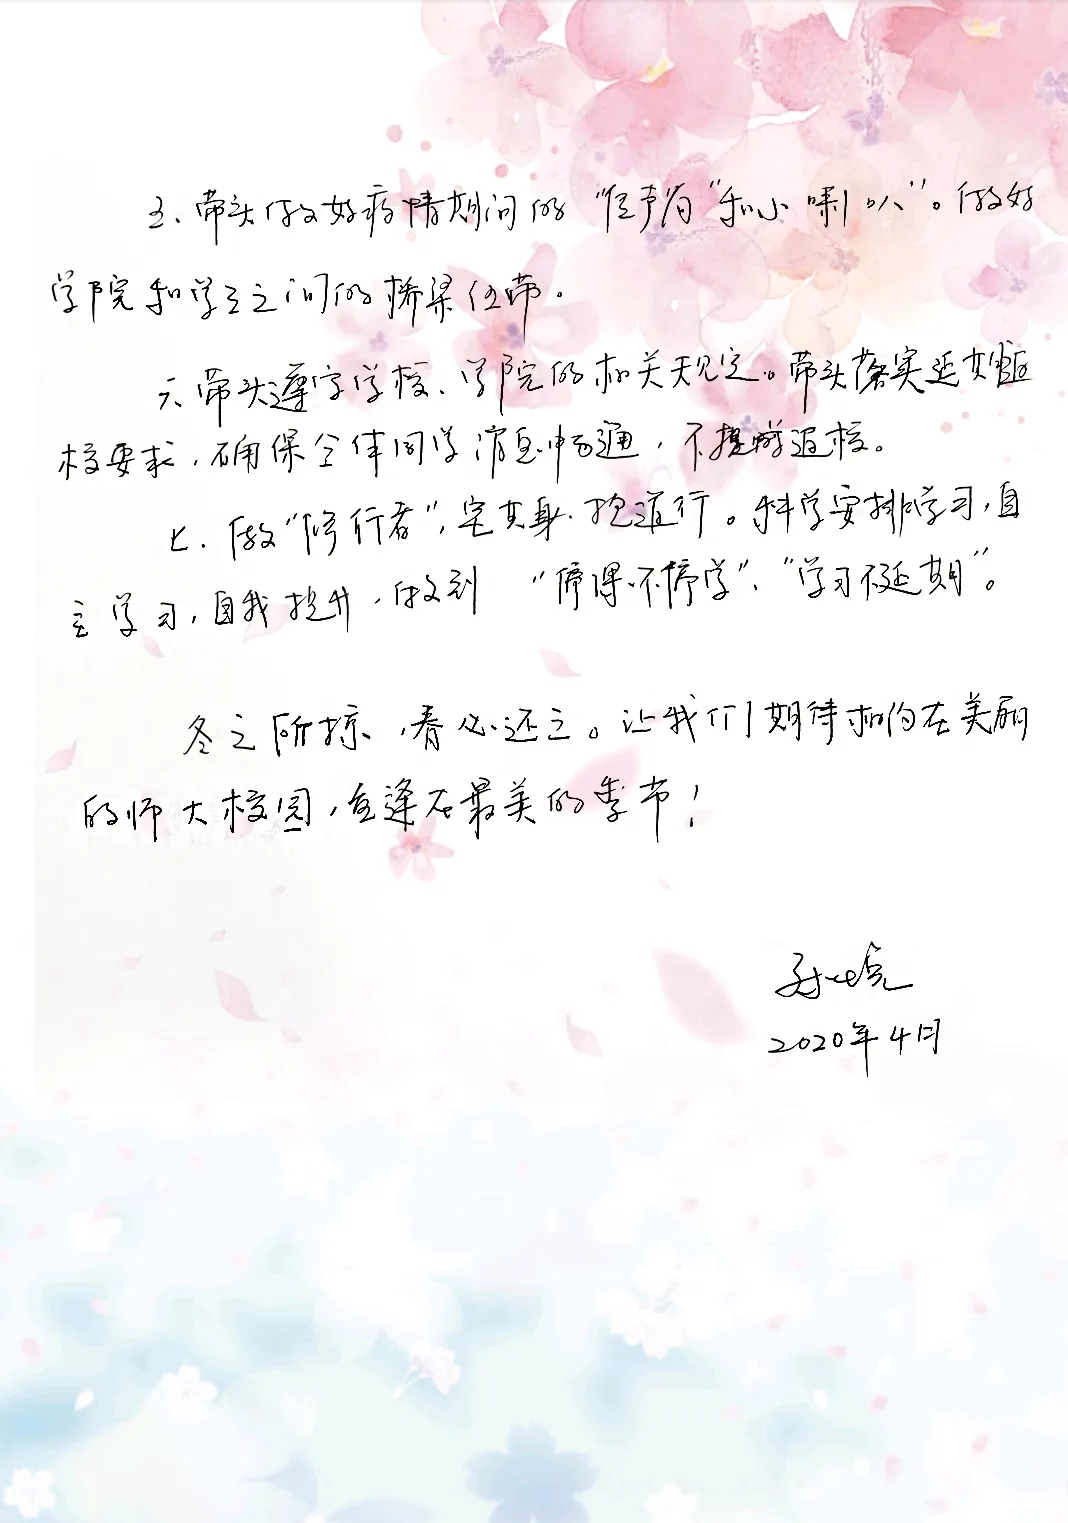 五、带头做好疫情期间的“传声筒”和“小喇叭”。做好
学院和学生之间的桥梁纽带。
六、带头遵守学校、学院的相关规定。带头落实延期返
校要求，确保全体同学消息畅通，不提前返校。
七、做“修行者”，宅其身、抱道行。科学安排学习，自
主学习，自我提升，做到“停课不停学”、“学习不延期”。
冬之所掠，春必还之。让我们期待相约在美丽
的师大校园，重逢在最美的季节！
2020年4月